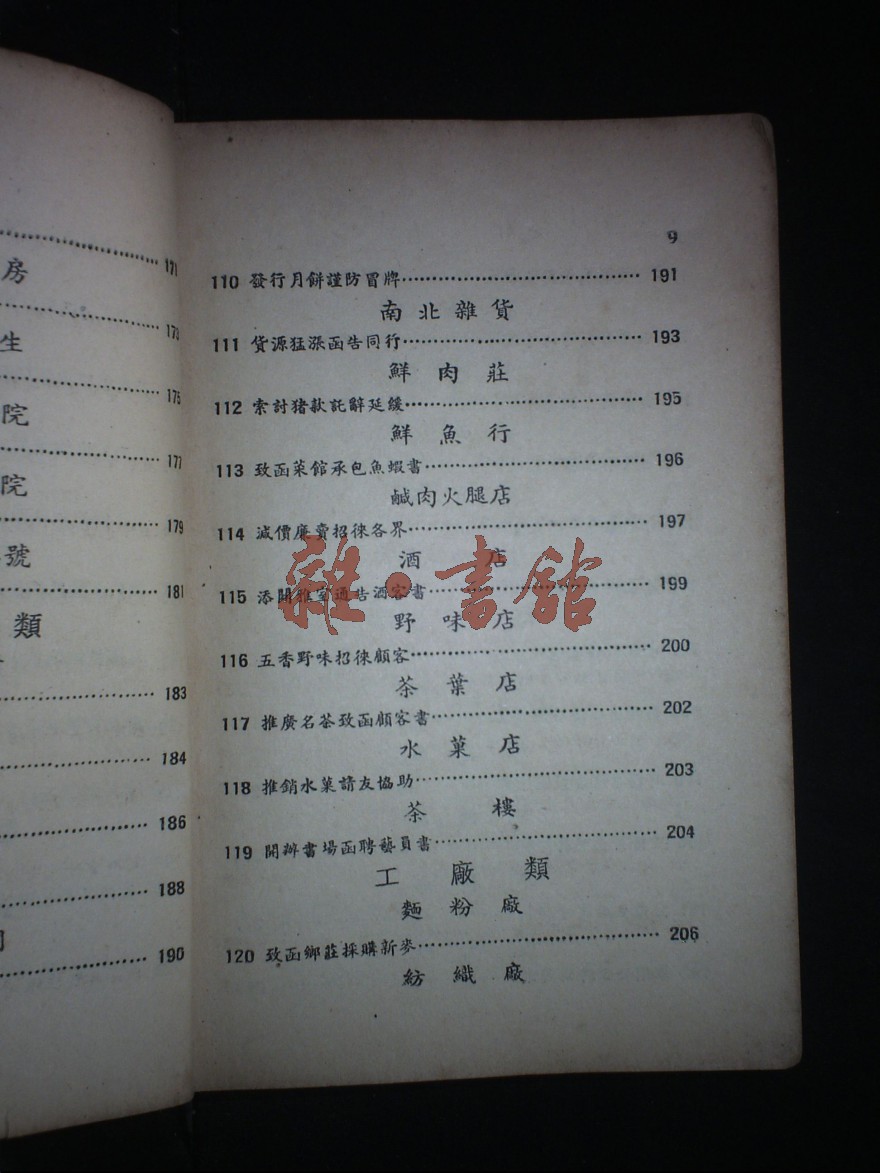 171
房
173
生
175
院
177
院
179
號
181
類
183
184
186
188
190
9
110 發行月餅謹防冒牌 191
南北雜貨
111 貨源猛漲函告同行 193
鮮肉莊
112 索討猪欵託辭延緩 195
鮮魚行
113 致函菜館承包魚蝦書 196
鹹肉火腿店
114 減價廉賣招徠各界 197
酒店
115 添開雅室通告酒客書 199
野味店
116 五香野味招徠顧客 200
茶葉店
117 推廣名茶致函顧客書 202
水菓店
118 推銷水菓請友協助 203
茶樓
119 開辦書場函聘藝員書 204
工廠類
麵粉廠
120 致函鄉莊採購新麥 206
紡織廠
雜·書館